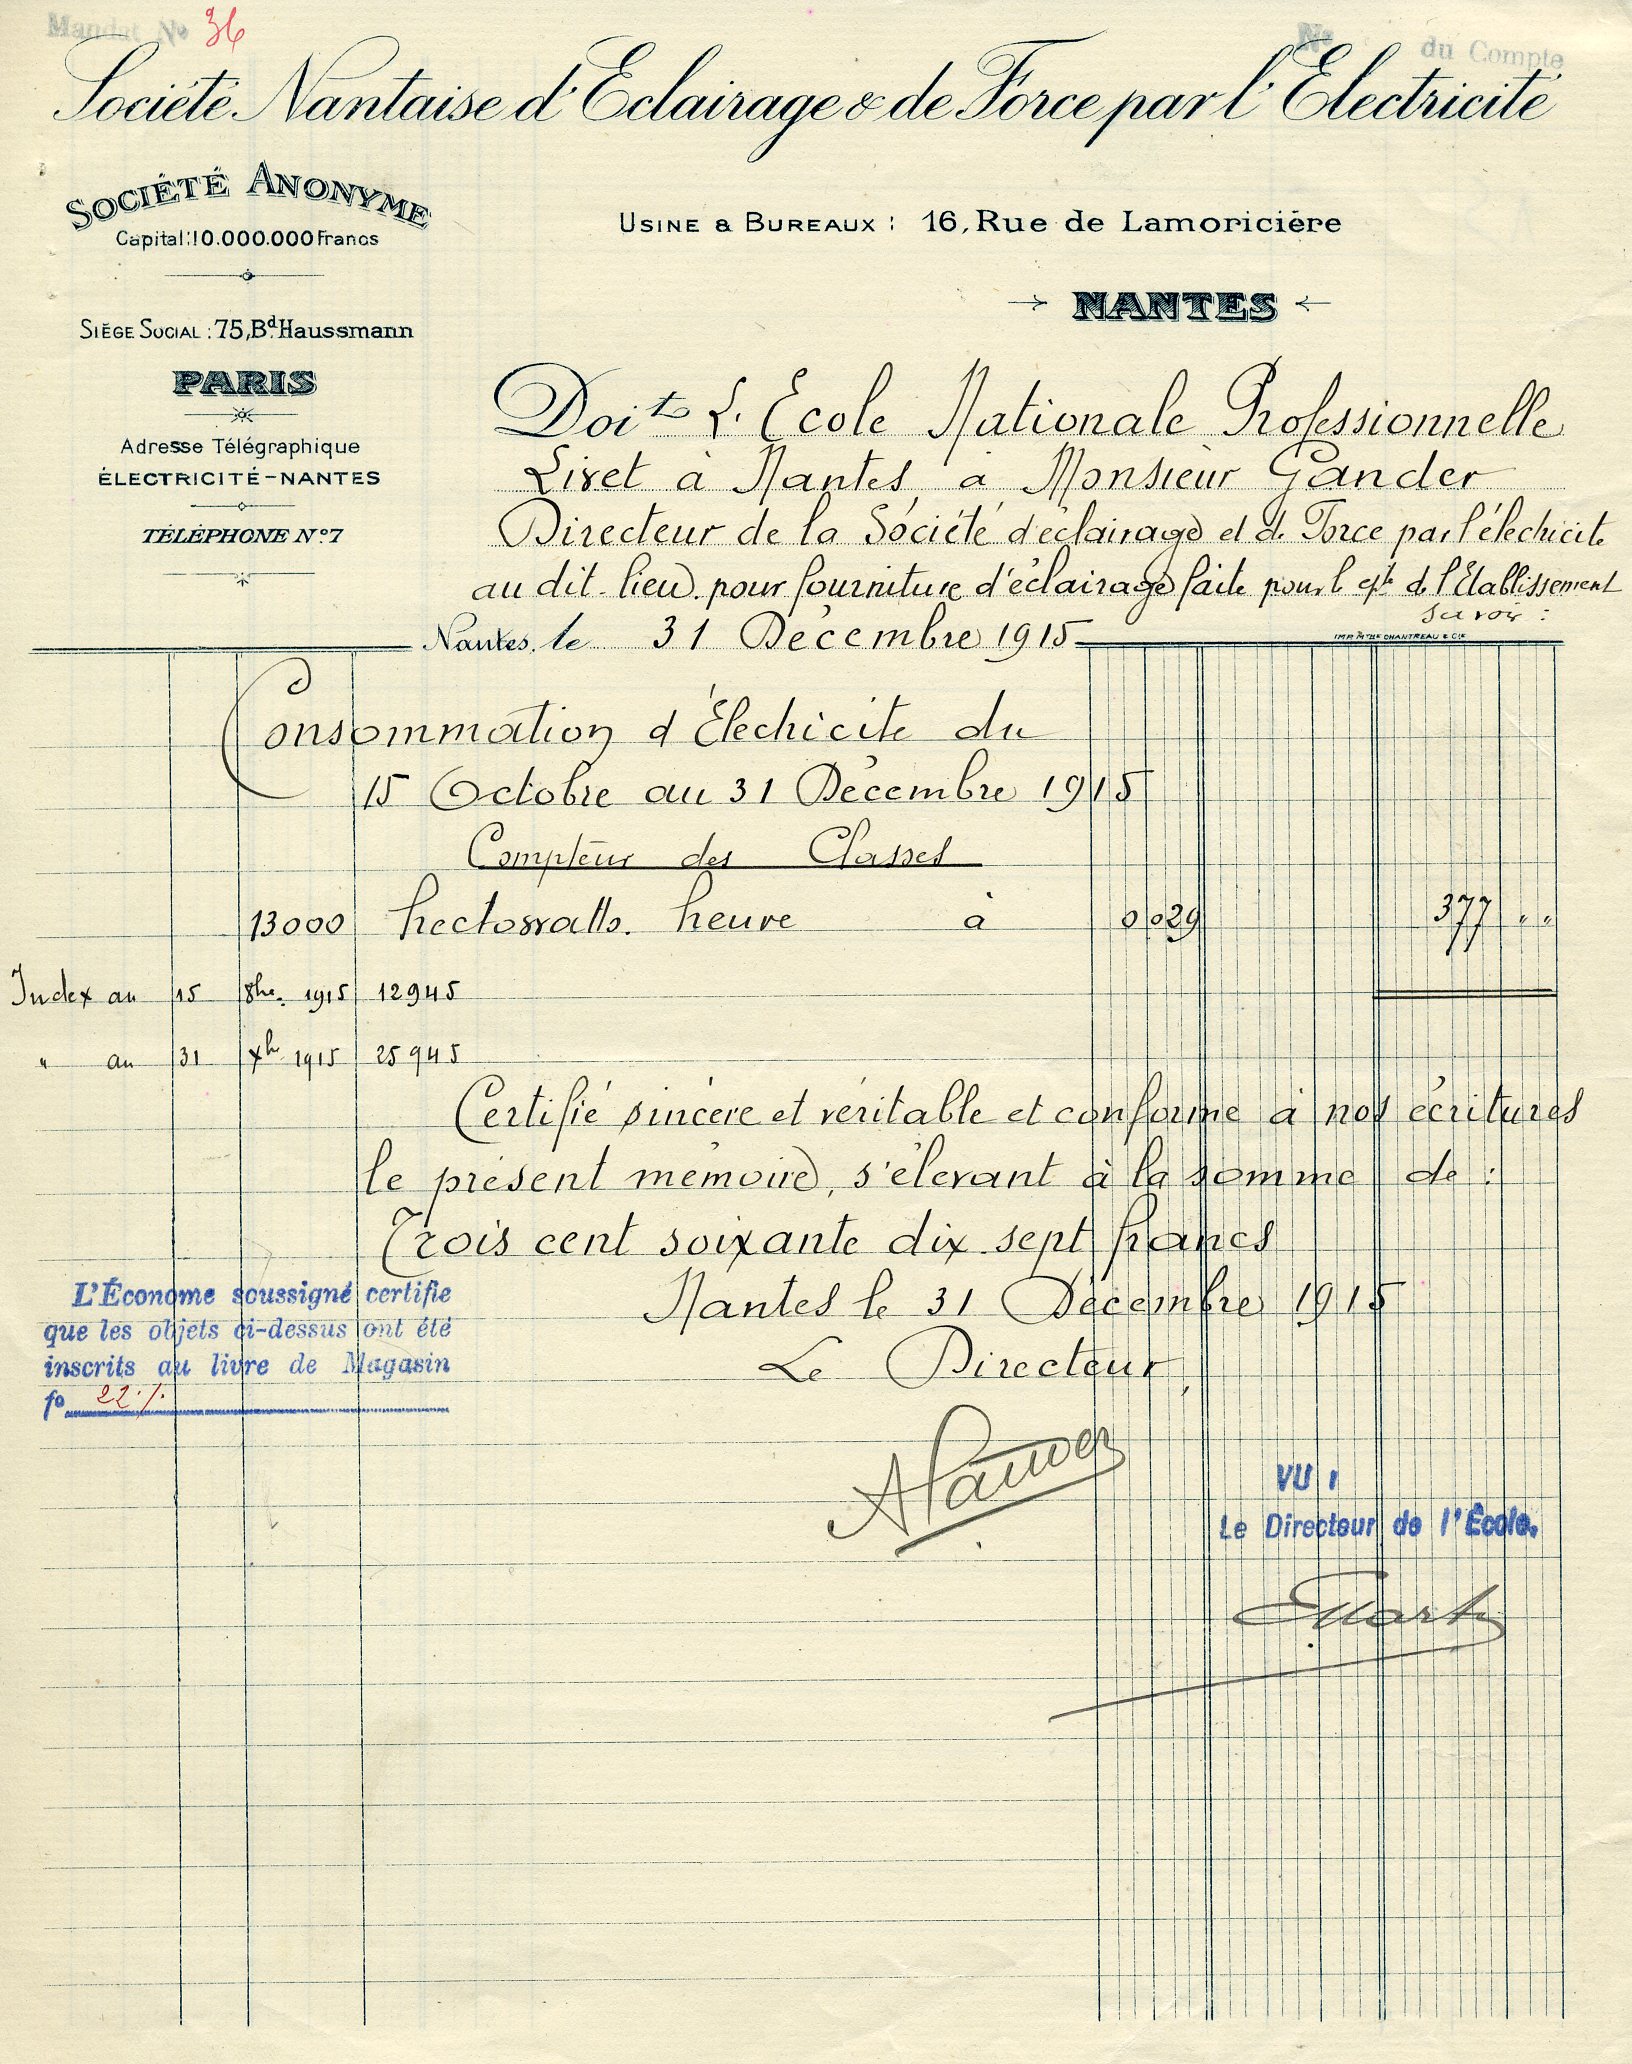 Mandat No 36
No du Compte
Société Nantaise d'Eclairage & de Force par l'Electricité
SOCIÉTÉ ANONYME
Capital: 10.000.000 Francs
SIÈGE SOCIAL : 75, Bd. Haussmann
PARIS
Adresse Télégraphique
ÉLECTRICITÉ-NANTES
TÉLÉPHONE No 7
USINE & BUREAUX : 16, Rue de Lamoricière
NANTES
Doit L'Ecole Nationale Professionnelle
Livet à Nantes, à Monsieur Gander
Directeur de la Société d'éclairage et de Force par l'électricité
au dit lieu pour fourniture d'éclairage faite pour le cpte de l'Etablissement
savoir :
Nantes, le 31 Décembre 1915
IMP. Mlle CHANTREAU & Cie
Consommation d'Électricité du
15 Octobre au 31 Décembre 1915
Compteur des Classes
13000 hectowatts. heure à 0 029 377 " "
Index au 15 8bre. 1915 12945
" au 31 Xbre 1915 25945
Certifié sincère et véritable et conforme à nos écritures
le présent mémoire, s'élevant à la somme de :
Trois cent soixante dix sept francs
Nantes le 31 Décembre 1915
Le Directeur,
L'Économe soussigné certifie
que les objets ci-dessus ont été
inscrits au livre de Magasin
fo 22
VU :
Le Directeur de l'École.